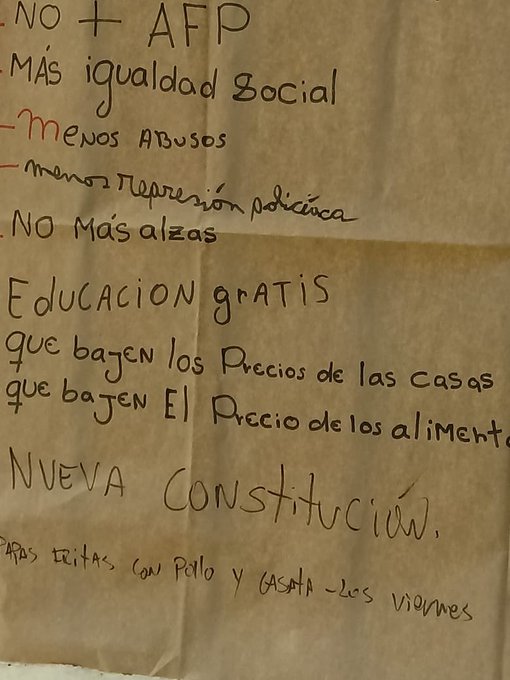 - NO + AFP
- MÁS igualdad social
- MENOS ABUSOS
- menos represión policíaca
- NO Más alzas
EdUCACION grATIS
que bajEN los Precios de las casas
que bajEN El Precio de los aliment
NUEVA CONStitución.
PAPAS FRitAS CON Pollo y CASAtA - Los viernes